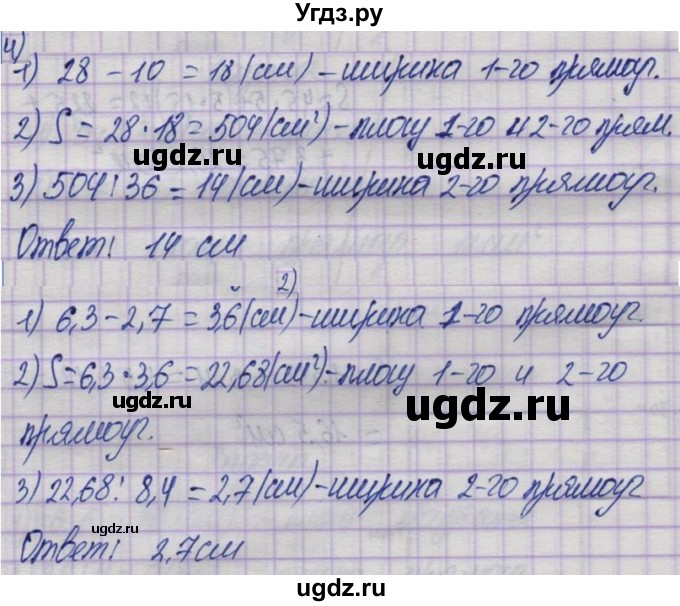 Угдз.ру
4)
1) 28 - 10 = 18 (см) - ширина 1-го прямоуг.
2) S = 28 · 18 = 504 (см²) - площ 1-го и 2-го прям.
ugdz.ru ugdz.ru
3) 504 : 36 = 14 (см) - ширина 2-го прямоуг.
Ответ: 14 см
ugdz.ru
2)
1) 6,3 - 2,7 = 3,6 (см) - ширина 1-го прямоуг.
2) S = 6,3 · 3,6 = 22,68 (см²) - площ 1-го и 2-го
ugdz.ru ugdz.ru
прямоуг.
3) 22,68 : 8,4 = 2,7 (см) - ширина 2-го прямоуг
ugdz.ru
Ответ: 2,7 см
ugdz.ru
ugdz.ru